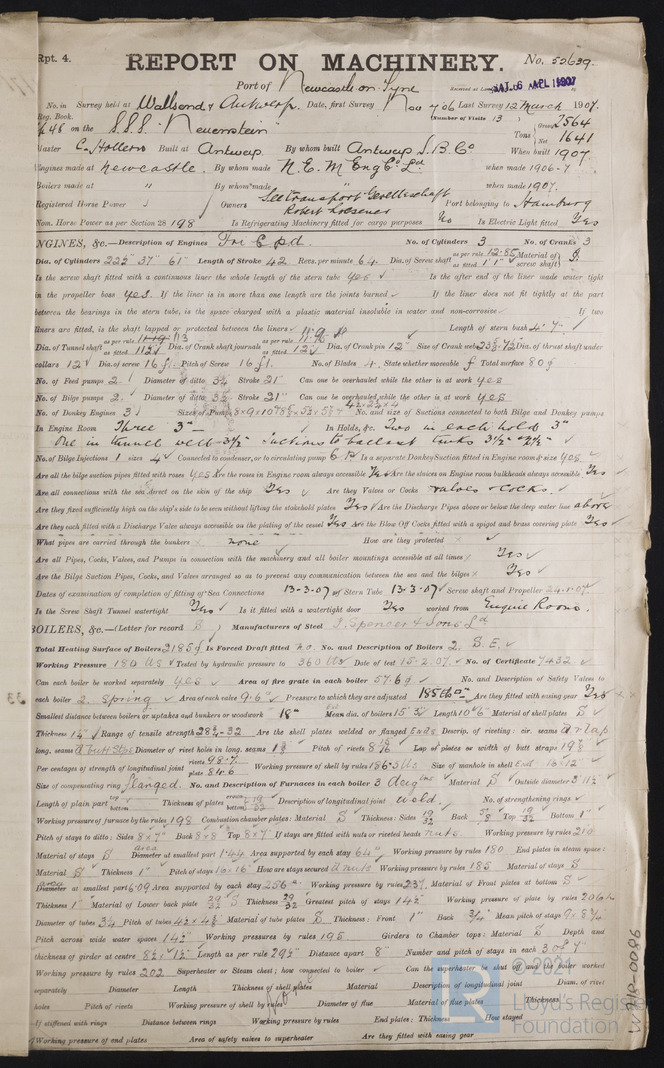 Rpt. 4.
REPORT ON MACHINERY. No. 52639.
Port of Newcastle on Tyne
No. in Survey held at Wallsend & Antwerp. Date, first Survey Nov 7 06 Last Survey 12 March 1907.
Reg. Book. (Number of Visits 13)
48 on the S.S.S. Neuenstein Tons Gross 2564 Net 1641
Master C. Built at Antwerp. By whom built Antwerp S.B. Co When built 1907.
Engines made at Newcastle. By whom made N.E.M Eng Co Ld when made 1906-7
Boilers made at " By whom made " when made 1907.
Registered Horse Power Owners Seetransport Gesellschaft Robert Loesener Port belonging to Hamburg
Nom. Horse Power as per Section 28 198 Is Refrigerating Machinery fitted for cargo purposes No Is Electric Light fitted Yes
ENGINES, &c.—Description of Engines No. of Cylinders 3 No. of Cranks 3
Dia. of Cylinders 22½ 37" 61" Length of Stroke 42 Revs. per minute 64. Dia. of Screw shaft as per rule 12.85 as fitted Material of screw shaft
Is the screw shaft fitted with a continuous liner the whole length of the stern tube yes Is the after end of the liner made water tight
in the propeller boss yes. If the liner is in more than one length are the joints burned If the liner does not fit tightly at the part
between the bearings in the stern tube, is the space charged with a plastic material insoluble in water and non-corrosive If two
liners are fitted, is the shaft lapped or protected between the liners Length of stern bush 4'-7"
Dia. of Tunnel shaft as per rule as fitted Dia. of Crank shaft journals as per rule as fitted 12" Dia. of Crank pin 12" Size of Crank webs Dia. of thrust shaft under
collars 12 Dia. of screw 16 ft Pitch of Screw 16 ft. No. of Blades 4 State whether moveable Total surface 80
No. of Feed pumps 2 Diameter of ditto Stroke 21" Can one be overhauled while the other is at work yes
No. of Bilge pumps 2 Diameter of ditto Stroke 21" Can one be overhauled while the other is at work yes
No. of Donkey Engines 3 Sizes of Pumps No. and size of Suctions connected to both Bilge and Donkey pumps
In Engine Room Three 3"— In Holds, &c. Two in each hold 3"
One in tunnel well 3½" Suctions to ballast tanks 3½" & 2½"
No. of Bilge Injections 1 sizes 4 Connected to condenser, or to circulating pump Is a separate Donkey Suction fitted in Engine room & size yes
Are all the bilge suction pipes fitted with roses yes Are the roses in Engine room always accessible Yes Are the sluices on Engine room bulkheads always accessible Yes
Are all connections with the sea direct on the skin of the ship Yes Are they Valves or Cocks valves & cocks.
Are they fixed sufficiently high on the ship's side to be seen without lifting the stokehold plates Yes Are the Discharge Pipes above or below the deep water line above
Are they each fitted with a Discharge Valve always accessible on the plating of the vessel Yes Are the Blow Off Cocks fitted with a spigot and brass covering plate Yes
What pipes are carried through the bunkers none How are they protected
Are all Pipes, Cocks, Valves, and Pumps in connection with the machinery and all boiler mountings accessible at all times Yes
Are the Bilge Suction Pipes, Cocks, and Valves arranged so as to prevent any communication between the sea and the bilges Yes
Dates of examination of completion of fitting of Sea Connections 13-3-07 of Stern Tube 13-3-07 Screw shaft and Propeller 24-1-07
Is the Screw Shaft Tunnel watertight Yes Is it fitted with a watertight door Yes worked from Engine Room.
BOILERS, &c.—(Letter for record S) Manufacturers of Steel J. Spencer & Sons Ld
Total Heating Surface of Boilers 3185 Is Forced Draft fitted no. No. and Description of Boilers 2. S.E.
Working Pressure 180 lbs Tested by hydraulic pressure to 360 lbs Date of test 15.2.07. No. of Certificate 7432
Can each boiler be worked separately yes Area of fire grate in each boiler 57.6 No. and Description of Safety Valves to
each boiler 2. Spring Area of each valve 9.6 Pressure to which they are adjusted 185 lbs Are they fitted with easing gear Yes
Smallest distance between boilers or uptakes and bunkers or woodwork 18" Mean dia. of boilers 15'3" Length 10'6" Material of shell plates S
Thickness Range of tensile strength 28¾-32 Are the shell plates welded or flanged Ends Descrip. of riveting: cir. seams d r lap
long. seams d butt Stps Diameter of rivet holes in long. seams Pitch of rivets Lap of plates or width of butt straps 19
Per centages of strength of longitudinal joint rivets 98.7. plate Working pressure of shell by rules 186.5 lbs Size of manhole in shell End 16 × 12
Size of compensating ring flanged. No. and Description of Furnaces in each boiler 3 Material S Outside diameter
Length of plain part top bottom Thickness of plates crown bottom 19/32 Description of longitudinal joint weld. No. of strengthening rings
Working pressure of furnace by the rules 198 Combustion chamber plates: Material S Thickness: Sides 19/32 Back Top 19/32 Bottom 1"
Pitch of stays to ditto: Sides 8 × 7" Back 8 × 8 Top 8 × 7 If stays are fitted with nuts or riveted heads nuts. Working pressure by rules 210
Material of stays S area Diameter at smallest part 1.44 Area supported by each stay 64" Working pressure by rules 180 End plates in steam space:
Material S Thickness 1" Pitch of stays 16 × 16 How are stays secured d nuts Working pressure by rules 185 Material of stays S
area Diameter at smallest part 6.09 Area supported by each stay 256 Working pressure by rules 237. Material of Front plates at bottom S
Thickness 1" Material of Lower back plate S Thickness 29/32 Greatest pitch of stays 14½ Working pressure of plate by rules 206
Diameter of tubes 3¼ Pitch of tubes Material of tube plates S Thickness: Front 1" Back ¾" Mean pitch of stays
Pitch across wide water spaces 14½ Working pressures by rules 195 Girders to Chamber tops: Material S Depth and
thickness of girder at centre Length as per rule 29½ Distance apart 8" Number and pitch of stays in each 3 of 7"
Working pressure by rules 202 Superheater or Steam chest; how connected to boiler Can the superheater be shut off and the boiler worked
separately Diameter Length Thickness of shell plates Material Description of longitudinal joint Diam. of rivet
holes Pitch of rivets Working pressure of shell by rules Diameter of flue Material of flue plates Thickness
If stiffened with rings Distance between rings Working pressure by rules End plates: Thickness How stayed
Working pressure of end plates Area of safety valves to superheater Are they fitted with easing gear
© 2021
Lloyd's Register
Foundation